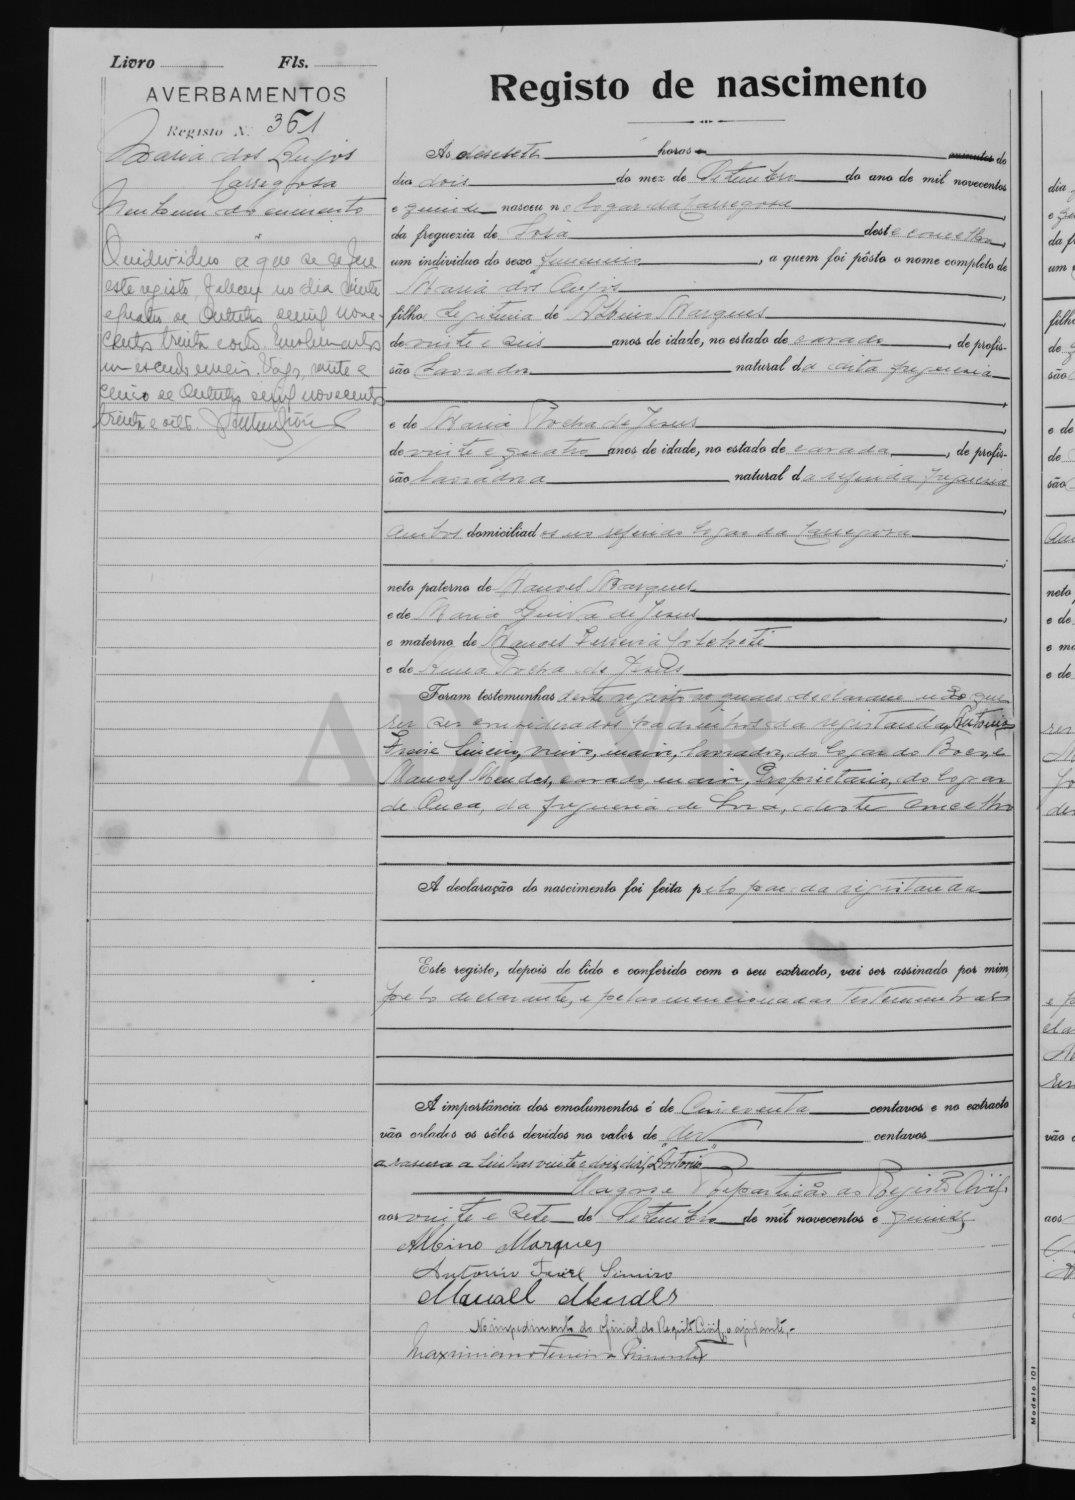 Livro Fls.
AVERBAMENTOS
Registo N.º 361
Maria dos Anjos
Carregosa
Nenhum documento
O individuo a que se refere
este registo, faleceu no dia vinte
e quatro de Outubro de mil nove-
centos trinta e oito. Emolumentos
um escudo e meio. Vagos, vinte e
cinco de Outubro de mil novecentos
trinta e oito.
Registo de nascimento
Ás dezesete horas e minutos do
dia dois do mez de Setembro do ano de mil novecentos
e quinze nasceu no logar da Carregosa
da freguezia de Soza deste concelho,
um individuo do sexo femenino, a quem foi pôsto o nome completo de
Maria dos Anjos,
filha legitima de Albino Marques
de vinte e seis anos de idade, no estado de casado, de profis-
são Lavrador natural da dita freguesia
e de Maria Rocha de Jesus,
de vinte e quatro anos de idade, no estado de casada, de profis-
são lavradora natural da referida freguesia
ambos domiciliados no referido logar da Carregosa
neto paterno de Manoel Marques
e de Maria de Jesus,
e materno de Manoel Ferreira
e de Rocha de Jesus
Foram testemunhas deste registo as quaes declararam não que-
rer ser considerados padrinhos da registanda, Antonio
Freire viuvo, maior, lavrador, do logar do Boco, e
Manoel Mendes, casado, maior, Proprietario, do logar
de Ouca, da freguesia de Soza, deste concelho
A declaração do nascimento foi feita pelo pae da registanda
Este registo, depois de lido e conferido com o seu extracto, vai ser assinado por mim,
pelo declarante, e pelas mencionadas testemunhas
A importância dos emolumentos é de Cincoenta centavos e no extracto
vão colados os sêlos devidos no valor de dez centavos
a rasura a linhas vinte e dois, diz, "Antonio"
Vagos e Repartição do Registo Civil
aos vinte e sete de Setembro de mil novecentos e quinze
Albino Marques
Antonio Freire
Manoel Mendes
No impedimento do oficial do Registo Civil, o ajudante,-
Maximiano Ferreira Pimentel
Modelo 101